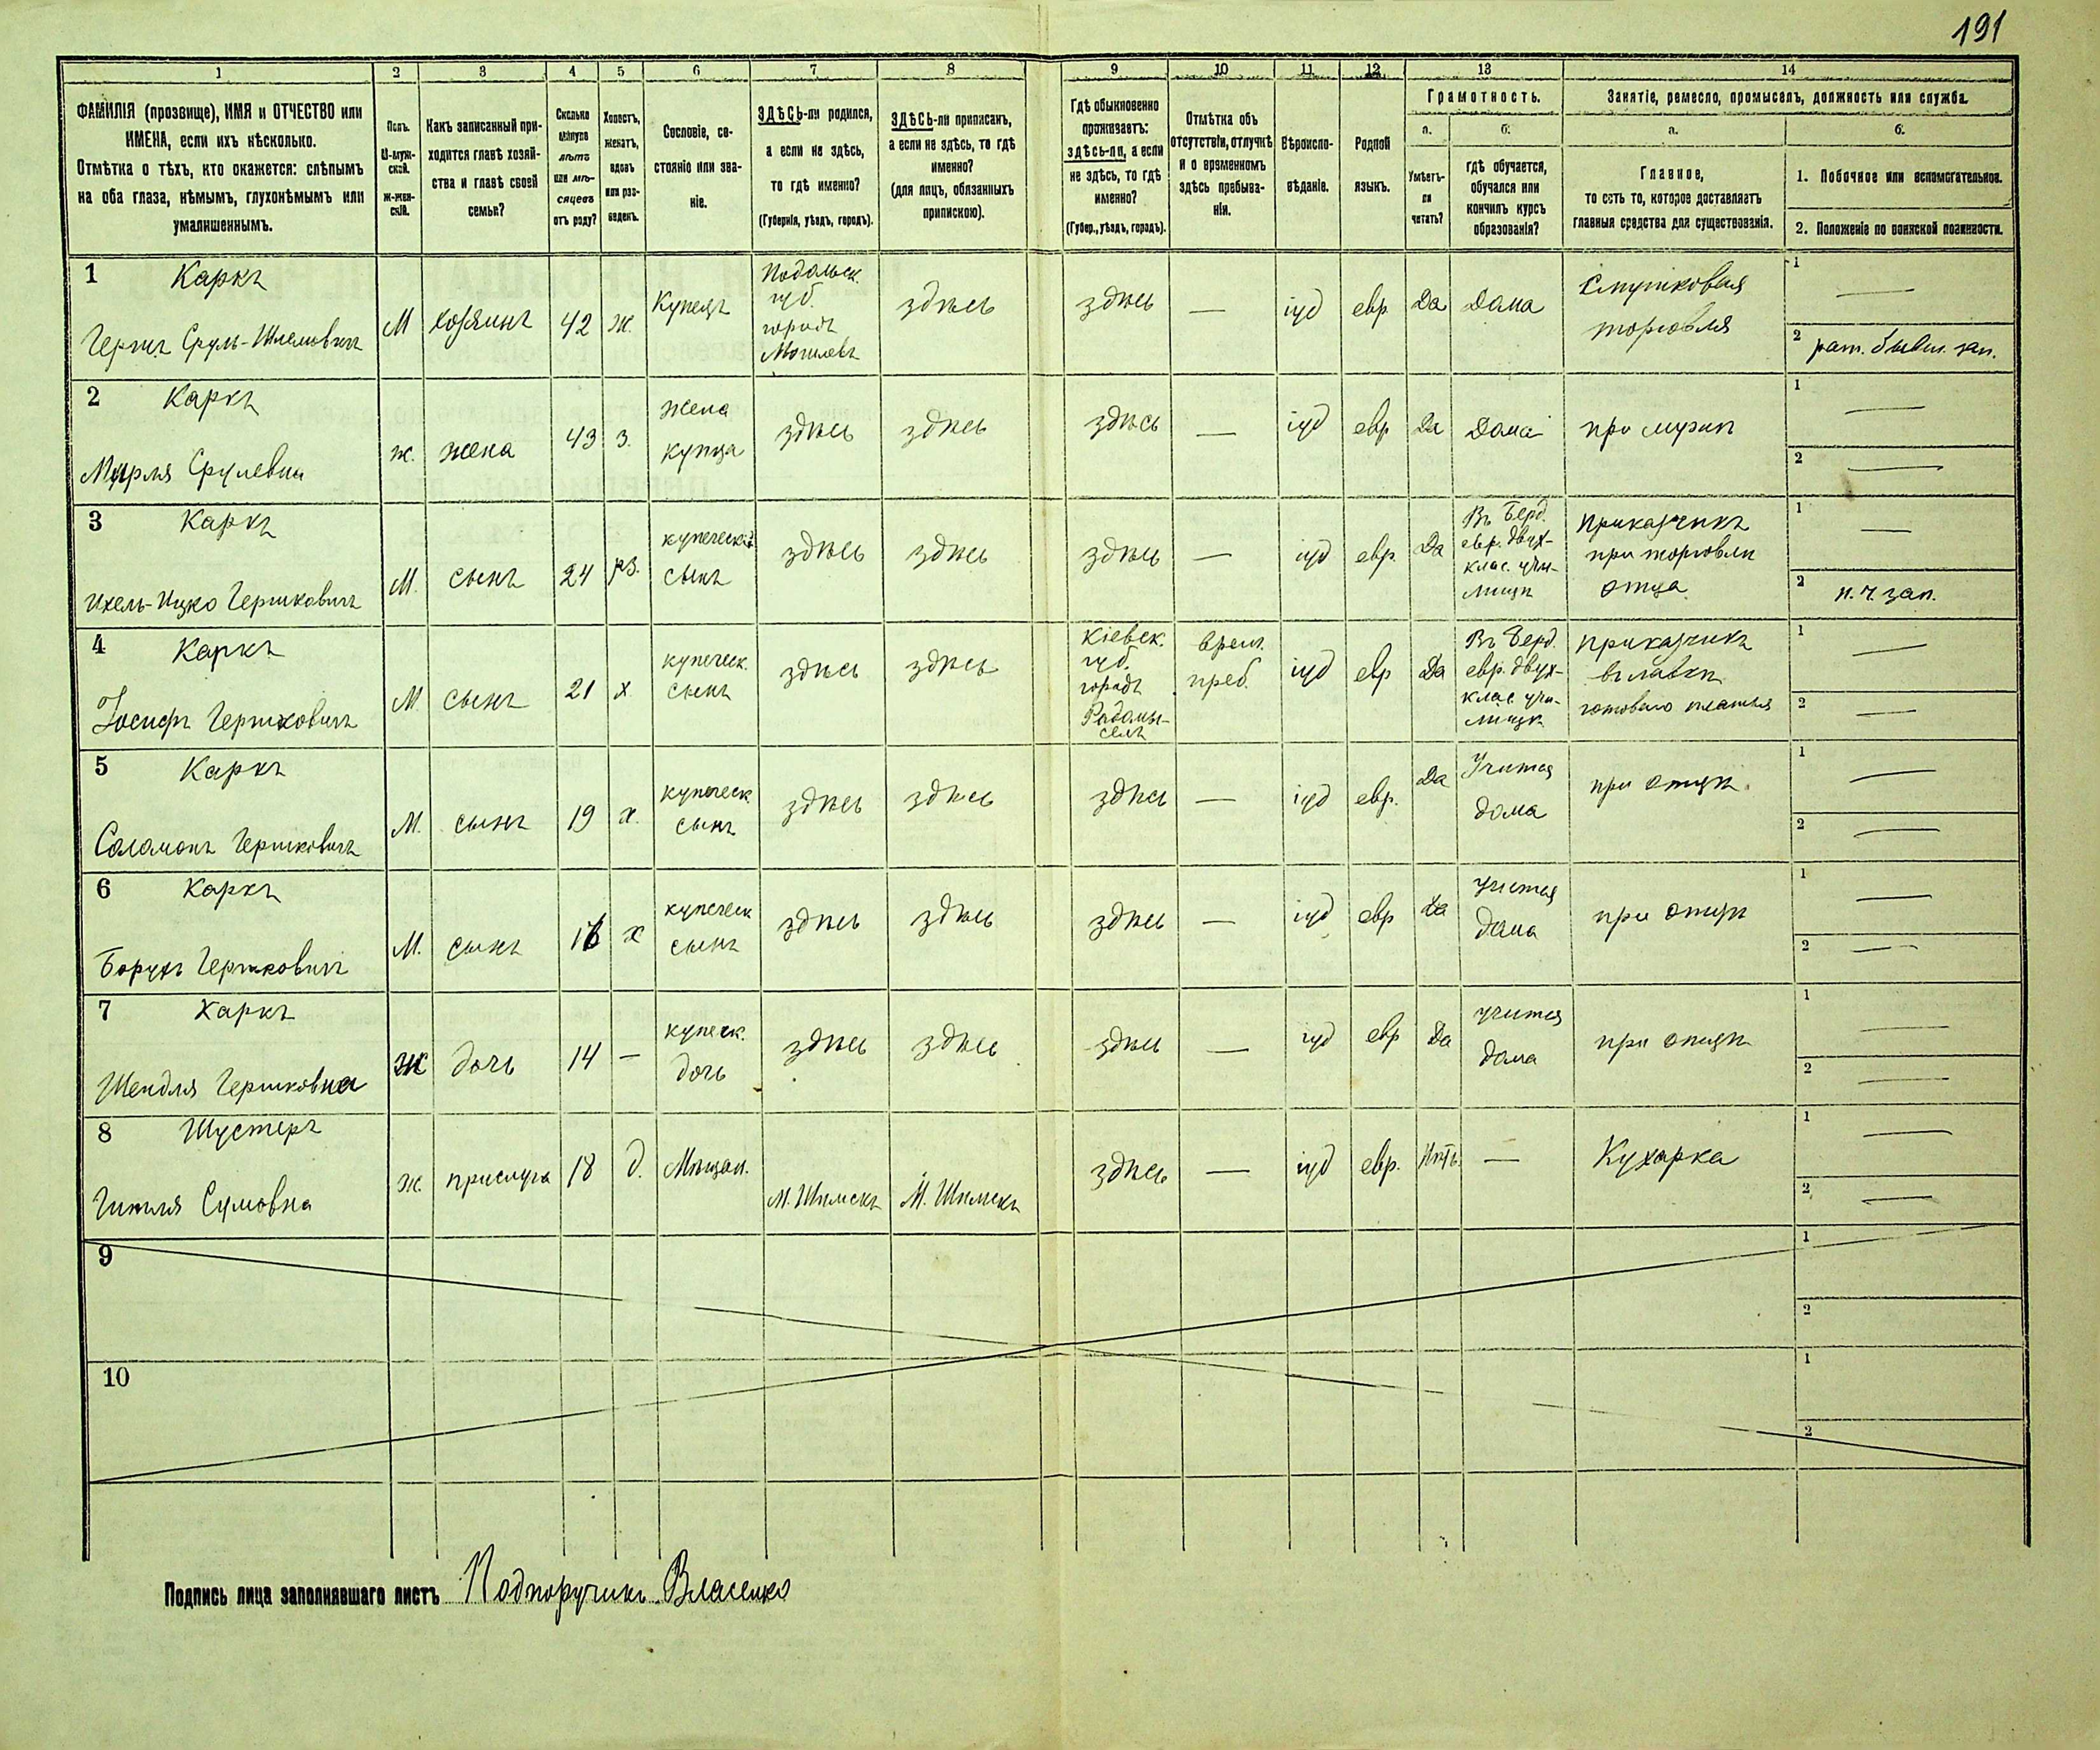 191
1 2 3 4 5 6 7 8 9 10 11 12 13 14
ФАМИЛІЯ (прозвище), ИМЯ и ОТЧЕСТВО или
ИМЕНА, если ихъ нѣсколько.
Отмѣтка о тѣхъ, кто окажется: слѣпымъ
на оба глаза, нѣмымъ, глухонѣмымъ или
умалишеннымъ.
Полъ.
М-муж-
ской.
Ж-жен-
скій.
Какъ записанный при-
ходится главѣ хозяй-
ства и главѣ своей
семьи?
Сколько
минуло
лѣтъ
или мѣ-
сяцевъ
отъ роду?
Холостъ,
женатъ,
вдовъ
или раз-
веденъ.
Сословіе, со-
стояніе или зва-
ніе.
ЗДѢСЬ-ли родился,
а если не здѣсь,
то гдѣ именно?
(Губернія, уѣздъ, городъ).
ЗДѢСЬ-ли приписанъ,
а если не здѣсь, то гдѣ
именно?
(для лицъ, обязанныхъ
припискою).
Гдѣ обыкновенно
проживаетъ:
здѣсь-ли, а если
не здѣсь, то гдѣ
именно?
(Губер., уѣздъ, городъ).
Отмѣтка объ
отсутствіи, отлучкѣ
и о временномъ
здѣсь пребыва-
ніи.
Вѣроиспо-
вѣданіе.
Родной
языкъ.
Грамотность.
а.
Умѣетъ-
ли
читать?
б.
гдѣ обучается,
обучался или
кончилъ курсъ
образованія?
Занятіе, ремесло, промыселъ, должность или служба.
а.
Главное,
то есть то, которое доставляетъ
главныя средства для существованія.
б.
1. Побочное или вспомогательное.
2. Положеніе по воинской повинности.
1 Каркъ
Гершъ Сруль-Шлемовичъ
М
хозяинъ
42
ж.
Купецъ
Подольск.
губ.
городъ
Могилевъ
здѣсь
здѣсь
—
іуд
евр.
Да
Дома
Смушковая
торговля
1 —
2 рат. бывш. зап.
2 Каркъ
Мирля Срулевна
ж.
жена
43
з.
жена
купца
здѣсь
здѣсь
здѣсь
—
іуд
евр
Да
Дома
при мужѣ
1 —
2 —
3 Каркъ
Ихель-Ицко Гершковичъ
М.
сынъ
24
рз.
купеческій
сынъ
здѣсь
здѣсь
здѣсь
—
іуд
евр.
Да
Въ Берд.
евр. двух-
клас. учи-
лищѣ
Приказчикъ
при торговлѣ
отца
1 —
2 н. ч. зап.
4 Каркъ
Іосифъ Гершковичъ
М
сынъ
21
х
купеческ.
сынъ
здѣсь
здѣсь
Кіевск.
губ.
городъ
Радомы-
сель
врем.
преб.
іуд
евр
Да
Въ Берд.
евр. двух-
клас. учи-
лищѣ
Приказчикъ
въ лавкѣ
готоваго платья
1 —
2 —
5 Каркъ
Соломонъ Гершковичъ
М.
сынъ
19
х.
купеческ.
сынъ
здѣсь
здѣсь
здѣсь
—
іуд
евр.
Да
Учится
дома
при отцѣ.
1 —
2 —
6 Каркъ
Борухъ Гершковичъ
М.
сынъ
16
х
купеческ
сынъ
здѣсь
здѣсь
здѣсь
—
іуд
евр
Да
Учится
дома
при отцѣ
1 —
2 —
7 Каркъ
Шендля Гершковна
Ж
дочь
14
—
купеч.
дочь
здѣсь
здѣсь
здѣсь
—
іуд
евр
Да
учится
дома
при отцѣ
1 —
2 —
8 Шустеръ
Гитля Сумовна
Ж.
прислуга
18
д.
Мѣщан.
здѣсь
—
іуд
евр.
Нѣтъ.
—
Кухарка
1 —
2 —
9
1
2
10
1
2
Подпись лица заполнявшаго листъ Подпоручикъ Власенко